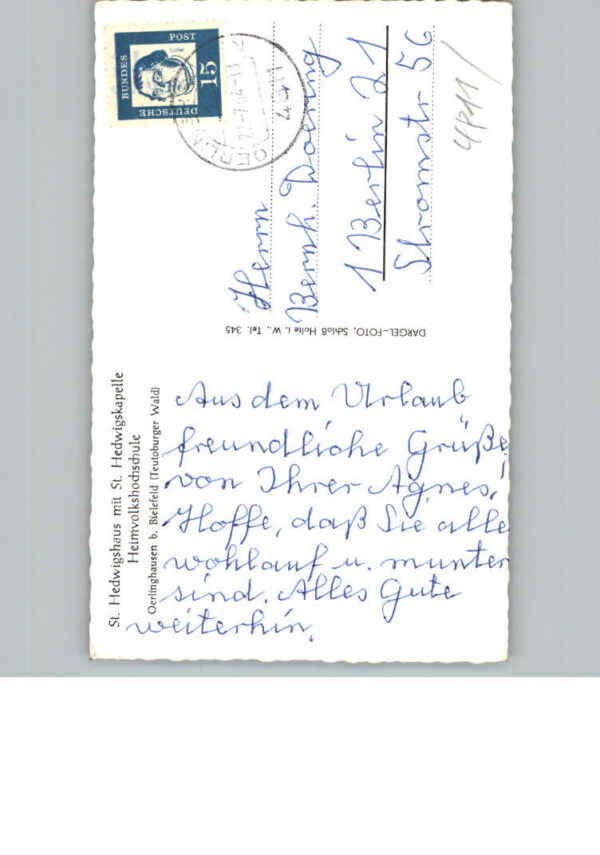 St. Hedwigshaus mit St. Hedwigskapelle
Heimvolkshochschule
Oerlinghausen b. Bielefeld (Teutoburger Wald)
Aus dem Urlaub
freundliche Grüße
von Ihrer Agnes!
Hoffe, daß Sie alle
wohlauf u. munter
sind. Alles Gute
weiterhin.
DARGEL-FOTO, Schloß Holte i. W., Tel. 345
DEUTSCHE
BUNDES
POST
15
Luther
4811
Herrn
Bernh. Doering
1 Berlin 21
Stromstr 56
4P11/